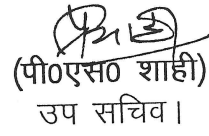 (पी0एस0 शाही)
उप सचिव।